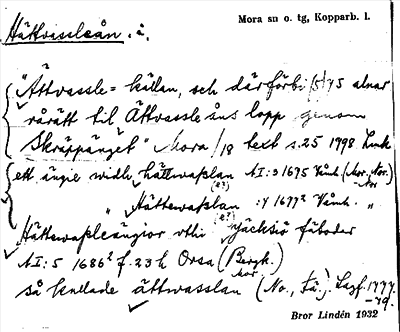 Hättvassleån. å.
Mora sn o. tg, Kopparb. l.
"Ättvassle = källan, och därförbi /5/ 75 alnar
rårätt til Ättvassle åns lopp genom
Skräppänget" Mora /18 text s. 25 1798. Link
ett ängie widh hättwaßlan AI:3 1675 Våmh. (Mor. Nor.)
" Hättewaßlan :4 1677² Våmh. "
Hättewaßleängior vthi Fjäcksiö fäboder
AI:5 1686² f. 23 h Orsa (Bergk.
så kallade ättwasslan (No., Få). Lagf. 1777
-79.
Bror Lindén 1932